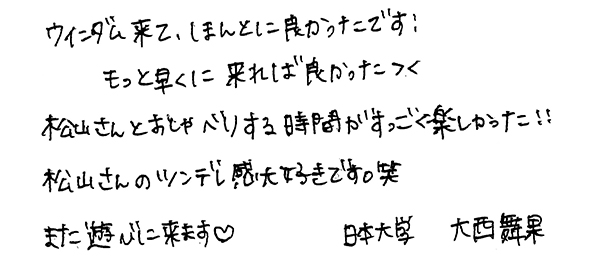 ウインダム来て、ほんとに良かったです!
もっと早くに来れば良かったつく
松山さんとおしゃべりする時間がすっごく楽しかった!!
松山さんのツンデレ感大好きです。笑
また遊びに来ます♡ 日本大学 大西舞果